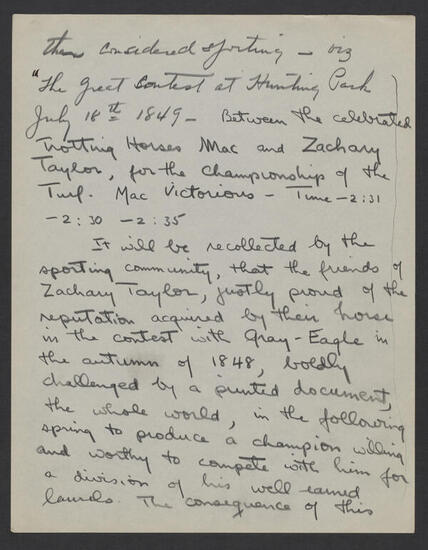 then considered sporting - viz
"The great Contest at Hunting Park
July 18th 1849 - Between the celebrated
Trotting Horses Mac and Zachary
Taylor, for the championship of the
Turf. Mac Victorious - Time - 2:31
- 2:30 - 2:35
It will be recollected by the
sporting community, that the friends of
Zachary Taylor, justly proud of the
reputation acquired by their horse
in the contest with Gray-Eagle in
the autumn of 1848, boldly
challenged by a printed document,
the whole world, in the following
spring to produce a champion willing
and worthy to compete with him for
a division of his well earned
laurels. The consequence of this